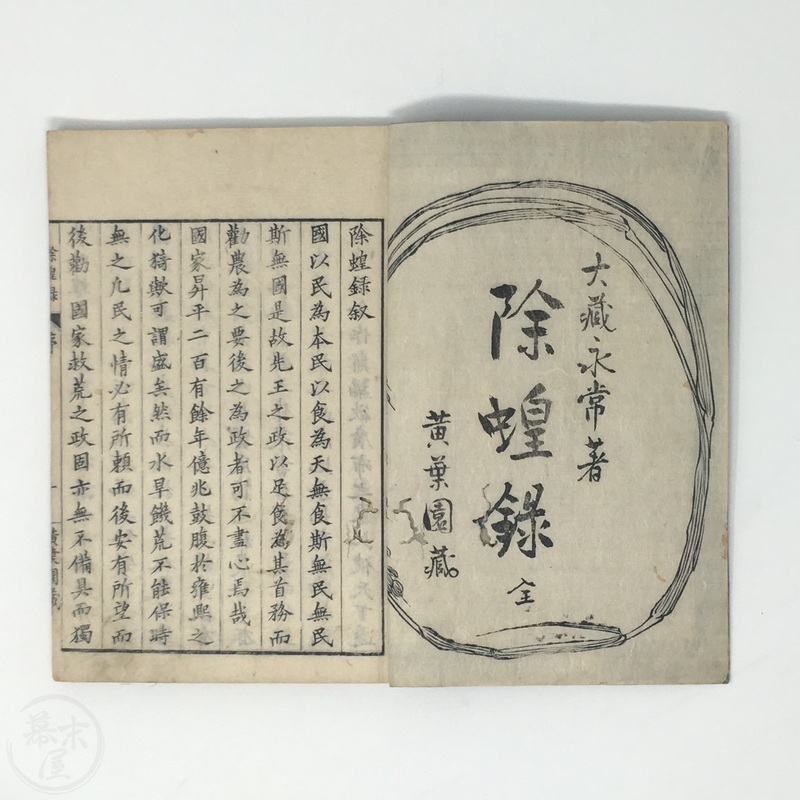 大藏永常著
除蝗録 全
黄葉園藏
除蝗録叙
國以民為本民以食為天無食斯無民無民
斯無國是故先王之政以足食為其首務而
勸農為之要後之為政者可不盡心焉哉
國家昇平二百有餘年億兆鼓腹於雍熙之
化猗歟可謂盛矣然而水旱饑荒不能保時
無之凢民之情必有所賴而後安有所望而
後勸 國家救荒之政固亦無不備具而獨
除蝗録 序 一 黄葉園藏
幕末屋